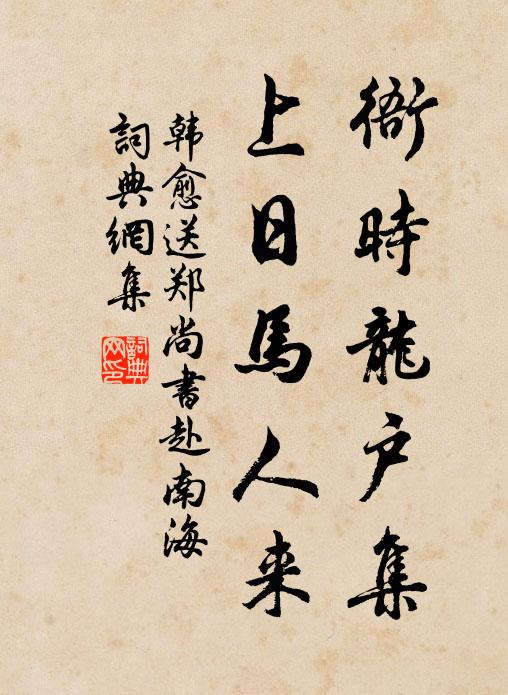 衙時龍户集
上日馬人来
韩愈送郑尚書赴南海
詞典網集
詞典網印